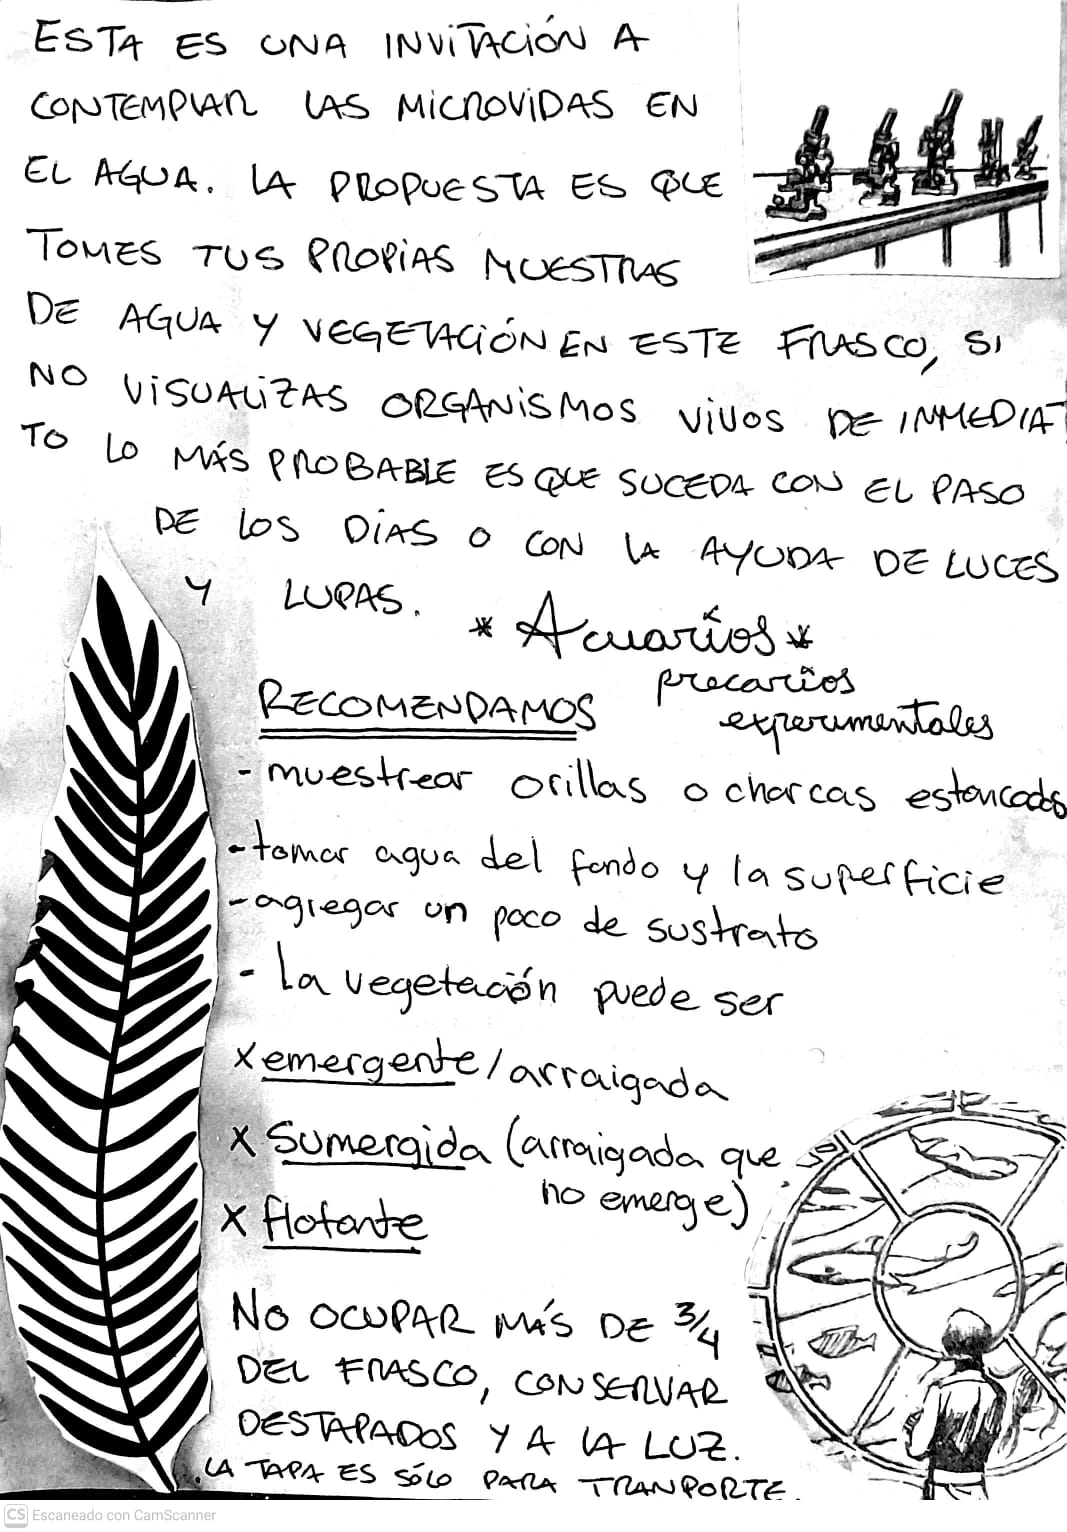 ESTA ES UNA INVITACIÓN A
CONTEMPLAR LAS MICROVIDAS EN
EL AGUA. LA PROPUESTA ES QUE
TOMES TUS PROPIAS MUESTRAS
DE AGUA Y VEGETACIÓN EN ESTE FRASCO, SI
NO VISUALIZAS ORGANISMOS VIVOS DE INMEDIAT
TO LO MÁS PROBABLE ES QUE SUCEDA CON EL PASO
DE LOS DÍAS O CON LA AYUDA DE LUCES
Y LUPAS.
* Acuarios *
precarios
experimentales
RECOMENDAMOS
- muestrear orillas o charcas estancadas
- tomar agua del fondo y la superficie
- agregar un poco de sustrato
- La vegetación puede ser
x emergente/arraigada
x Sumergida (arraigada que
no emerge)
x flotante
NO OCUPAR MÁS DE 3/4
DEL FRASCO, CONSERVAR
DESTAPADOS Y A LA LUZ.
. LA TAPA ES SÓLO PARA TRANPORTE.
CS Escaneado con CamScanner